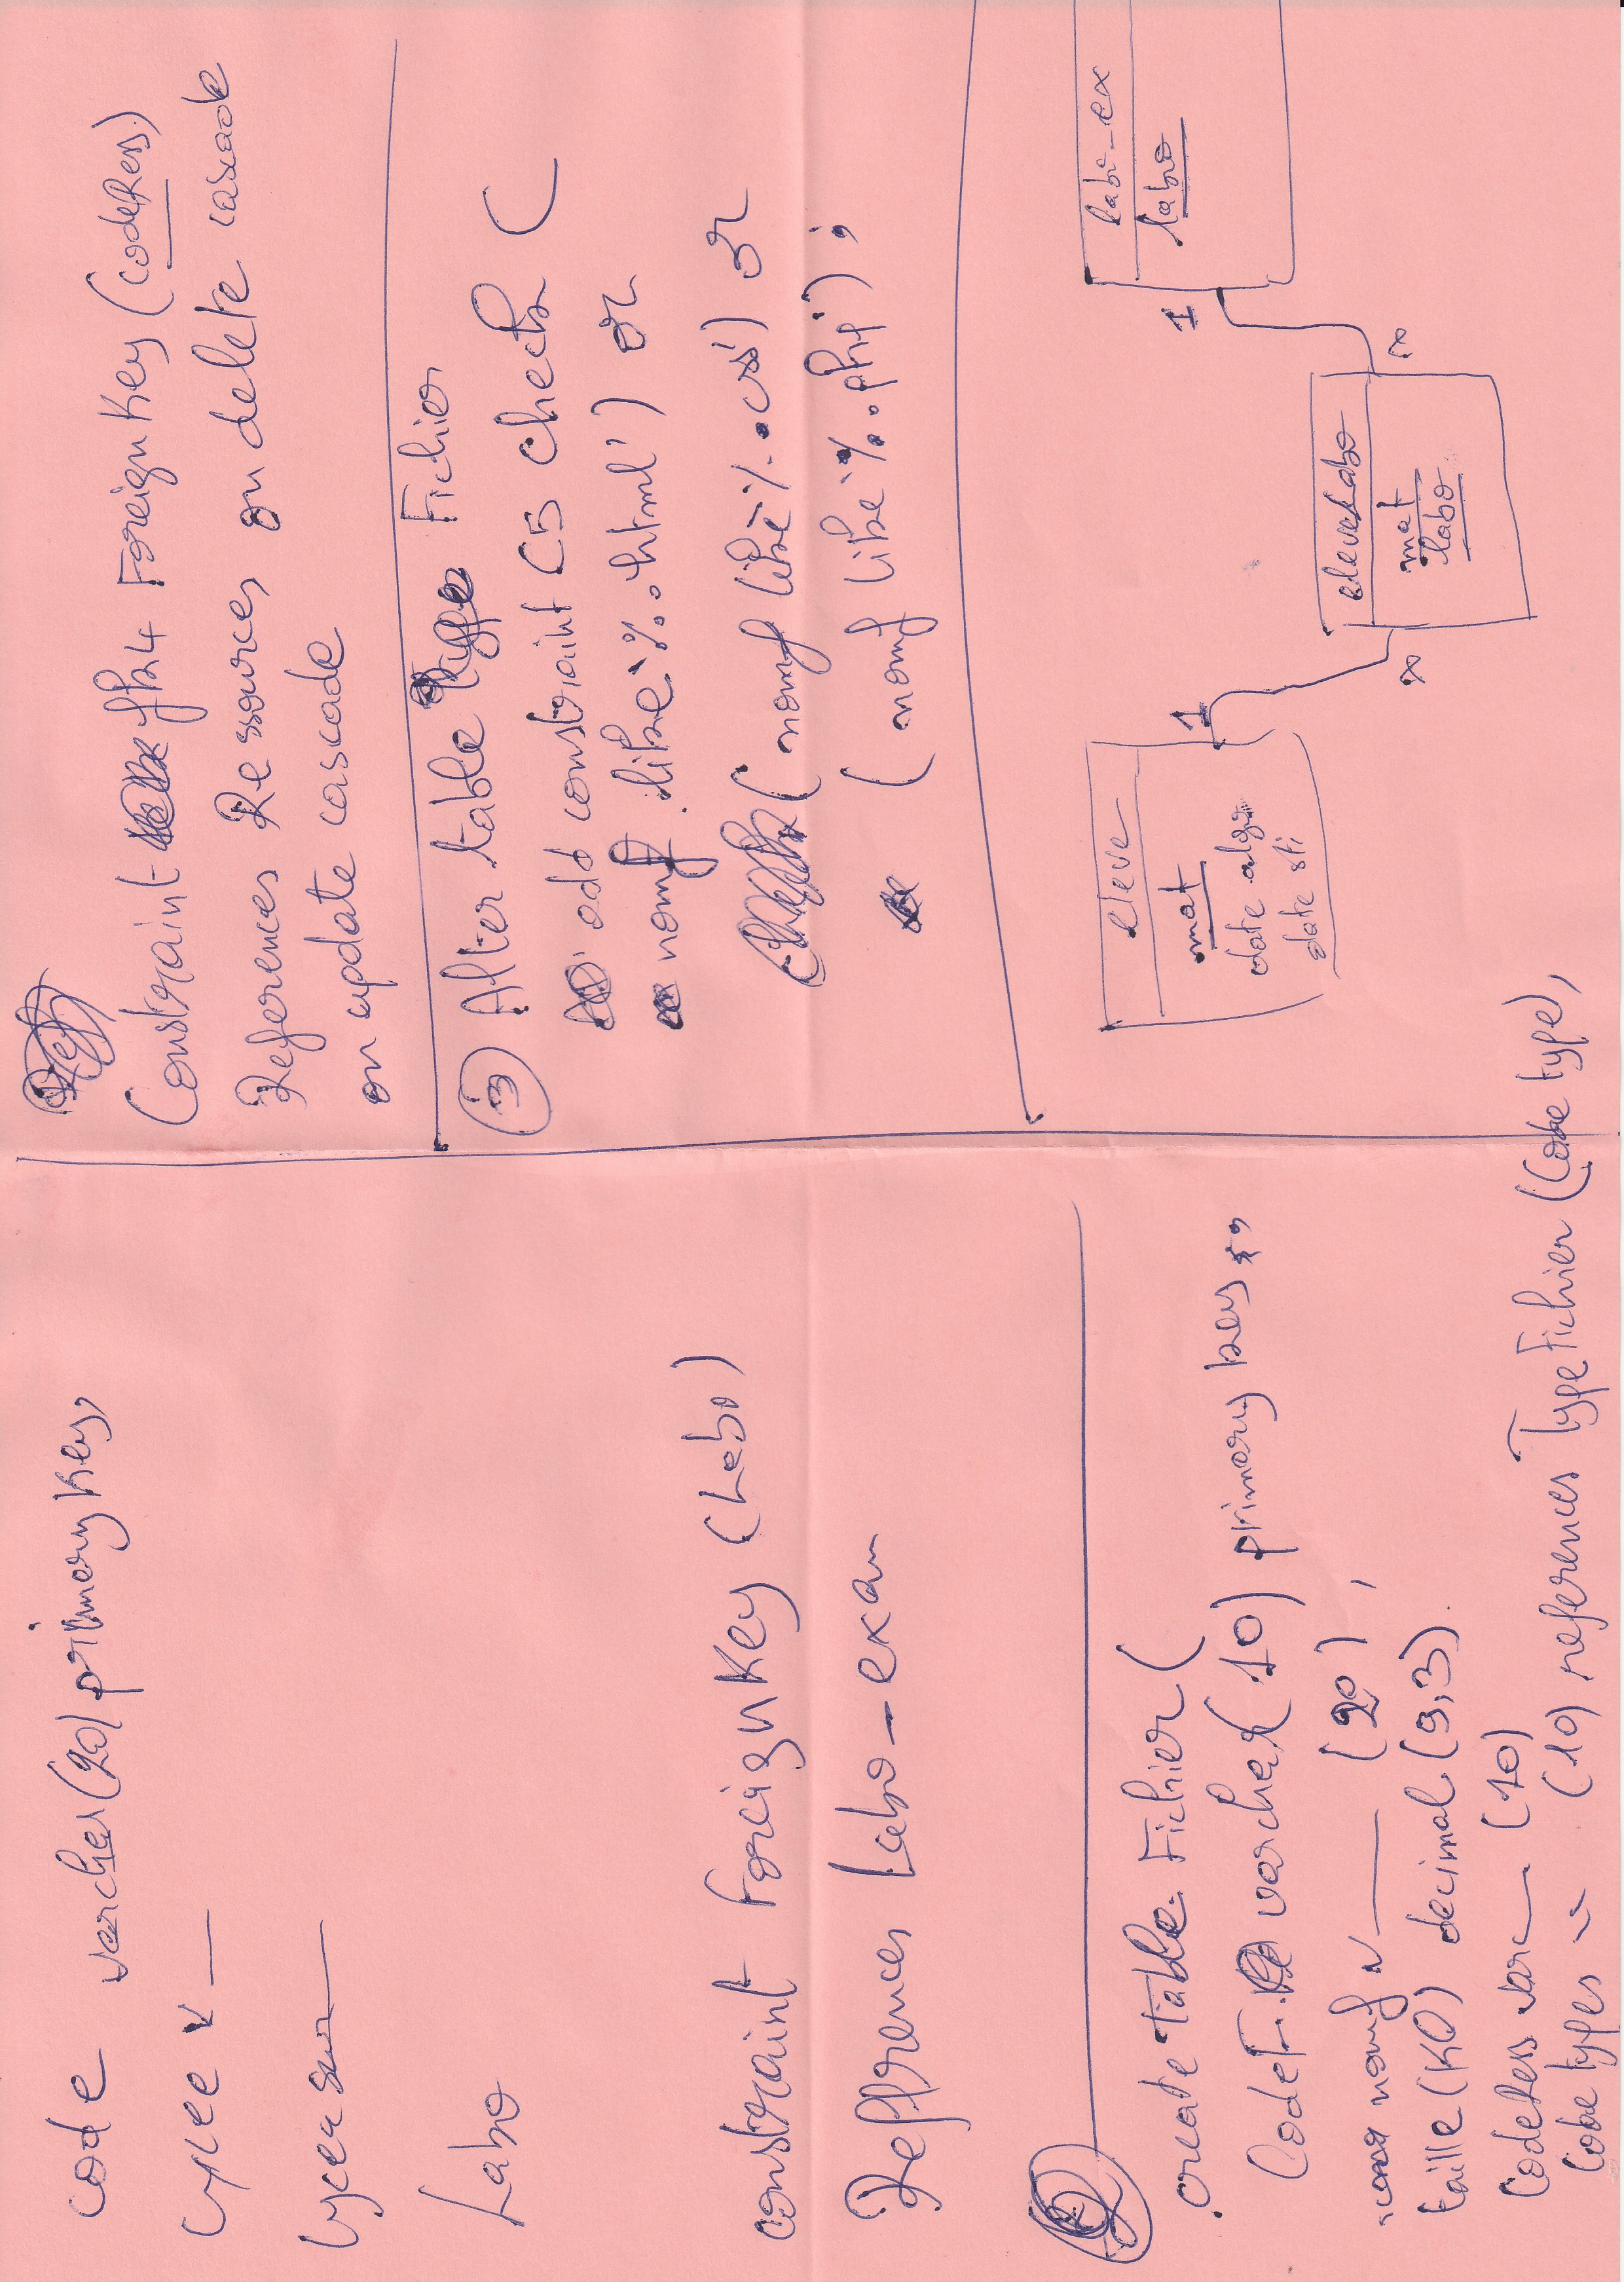 code varchar(20) primary Key,
Lycee v
Lycee sur
Labo
constraint Foreign Key (Labo)
Refferences Labo_exam
2
create Table Fichier (
CodeF varchar(10) primary key,
nomf v (20),
taille(KO) decimal(9,3).
CodeRess varc (10)
Code types " (10) references TypeFichier (Code type),
Constraint fk4 Foreign Key (codeRess)
References Ressources on delete cascade
on update cascade
3 Alter table Fichier
add constraint C5 check (
nomf like '%.html') or
(nomf like '%.css') or
(nomf like '%.php');
eleve
mat
date algo
date sti
1
labo_ex
labo
1
eleveLabo
mat
labo